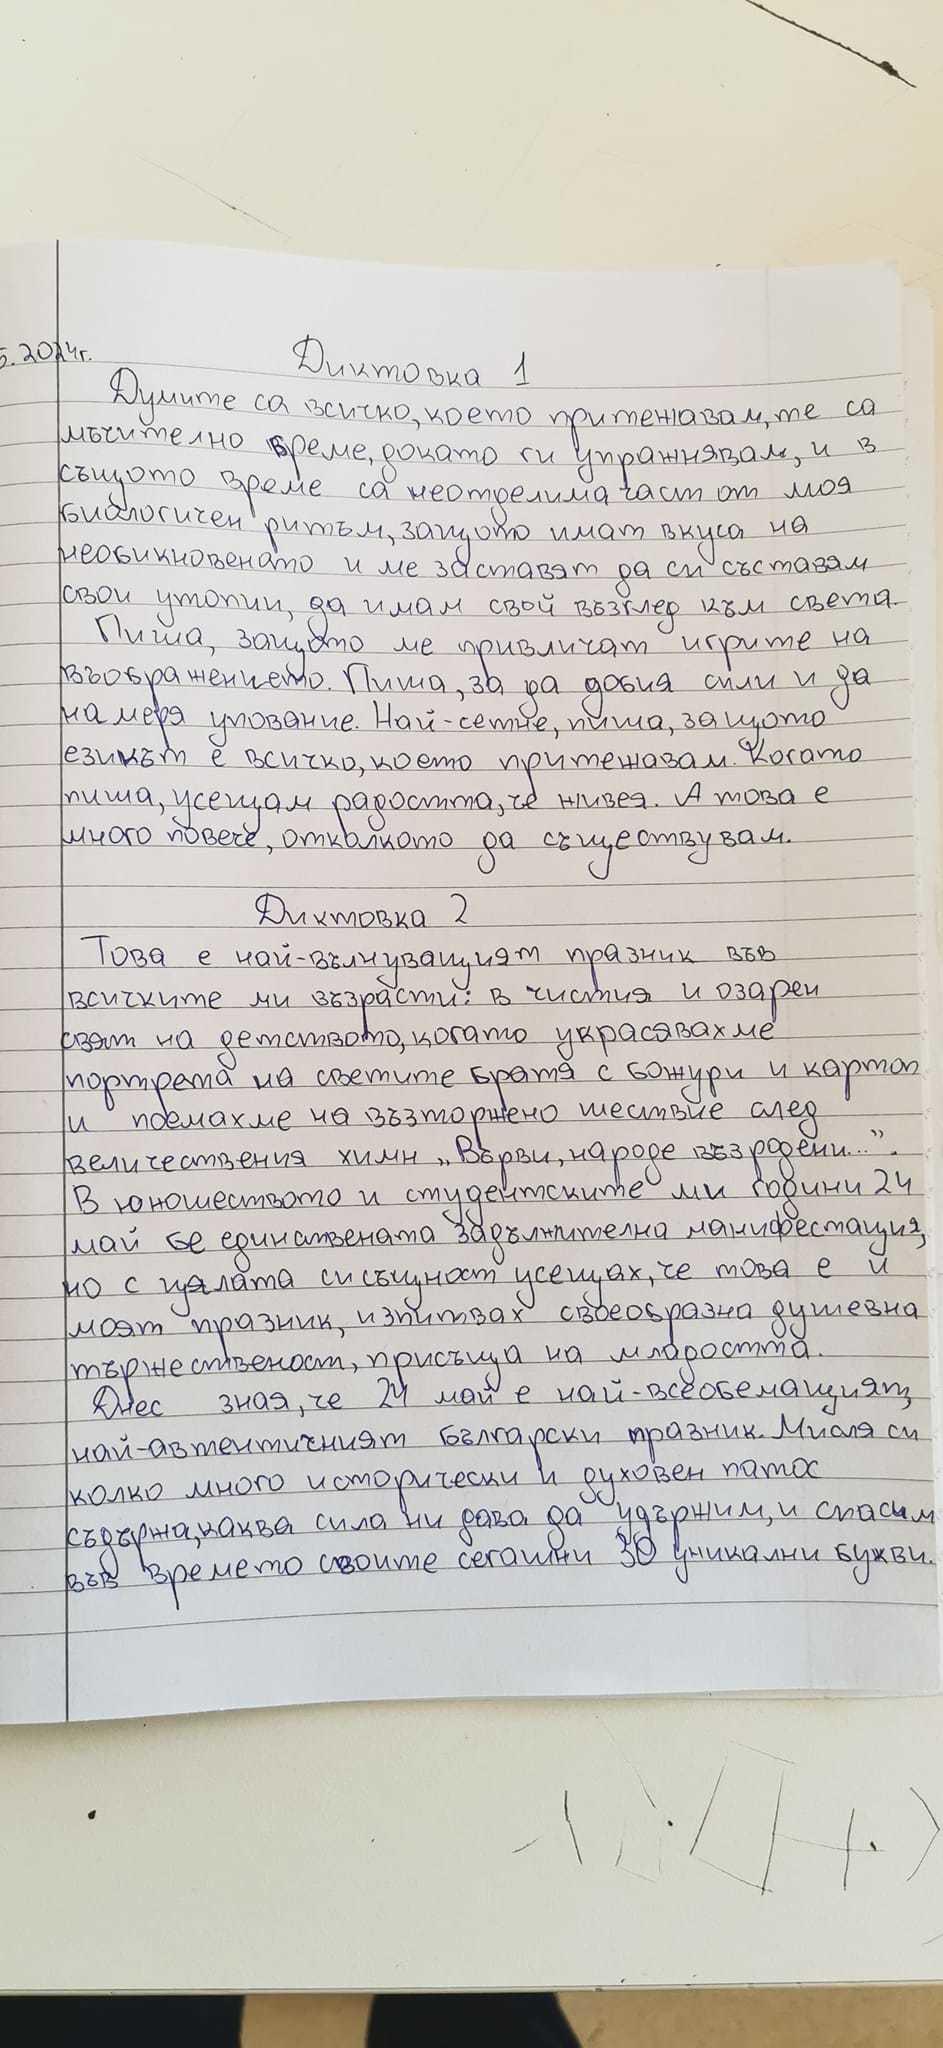 5.2024г.
Диктовка 1
Думите са всичко, което притежавам, те са
мъчително време, докато ги упражнявам, и в
същото време са неотделима част от моя
биологичен ритъм, защото имат вкуса на
необикновенато и ме заставят да си съставям
свои утопии, да имам свой възглед към света.
Пиша, защото ме привличат игрите на
въображението. Пиша, за да добия сили и да
намеря упование. Най-сетне, пиша, защото
езикът е всичко, което притежавам. Когато
пиша, усещам радостта, че живея. А това е
много повече, отколкото да съществувам.
Диктовка 2
Това е най-вълнуващият празник във
всичките ми възрасти: в чистия и озарен
свят на детството, когато украсявахме
портрета на светите братя с божури и картоп
и поемахме на възторжено шествие след
величествения химн „Върви, народе възродени...".
В юношеството и студентските ми години 24
май бе единствената задължителна манифестация,
но с цялата си същност усещах, че това е и
моят празник, изпитвах своеобразна душевна
тържественост, присъща на младостта.
Днес зная, че 24 май е най-всеобемащият,
най-автентичният български празник. Мисля си
колко много исторически и духовен патос
съдържа, каква сила ни дава да удържим, и спасим
във времето своите сегашни 30 уникални букви.